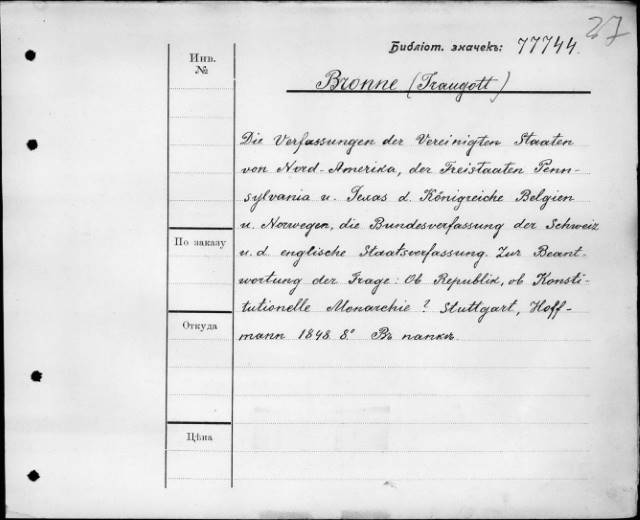 27
Библіот. значекъ: 77744.
Инв.
№
Bronne (Traugott)
Die Verfassungen der Vereinigten Staaten
von Nord-Amerika, der Freistaaten Penn-
sylvania u. Texas d. Königreiche Belgien
u. Norwegen, die Bundesverfassung der Schweiz
По заказу
u. d. englische Staatsverfassung. Zur Beant-
wortung der Frage: Ob Republik, ob Konsti-
tutionelle Monarchie? Stuttgart, Hoff-
Откуда
mann 1848. 8° Въ папкѣ.
Цѣна